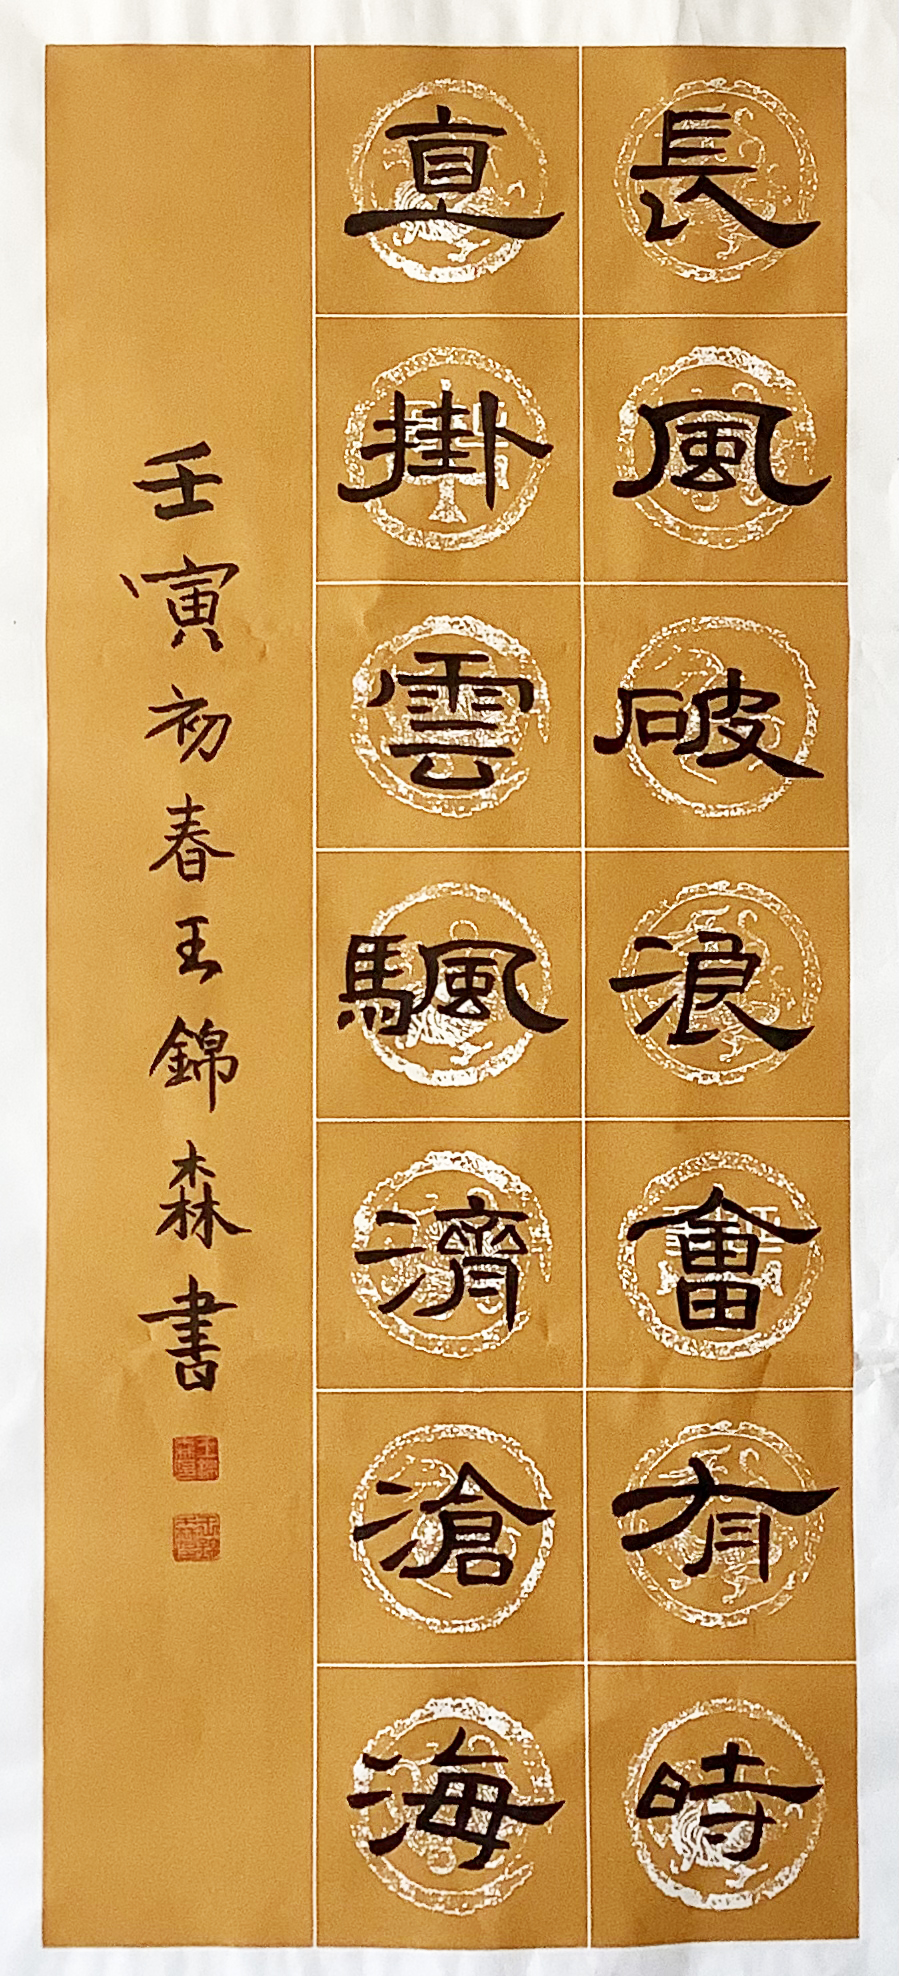 長風破浪會有時
直掛雲颿濟滄海
壬寅初春王錦森書